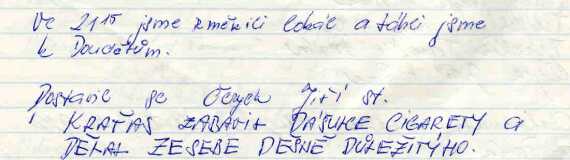 Ve 21¹⁵ jsme změnili lokál a táhli jsme
k Doudětům.
Dostavil se Čech Jiří st.
KRAŤAS ZABAVIL DAŠULCE CIGARETY a
DĚLAL ZE SEBE DĚSNĚ DŮLEŽITÝHO.